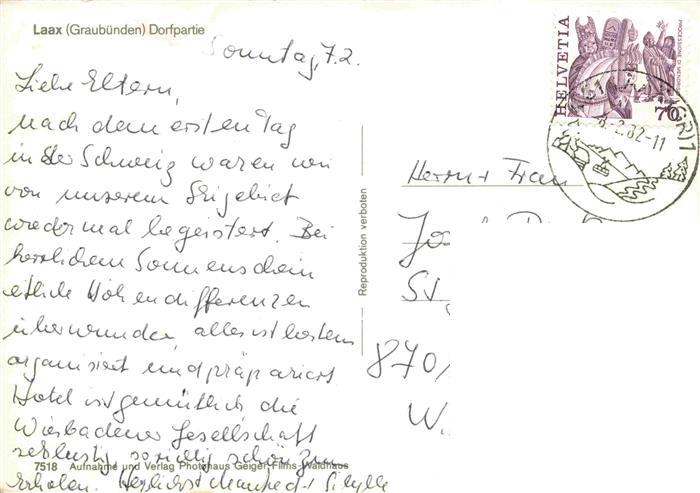 Laax (Graubünden) Dorfpartie
Sonntag, 7.2.
Liebe Eltern,
nach dem ersten Tag
in der Schweiz waren wir
von unserem Skigebiet
wiedermal begeistert. Bei
herrlichem Sonnenschein
etliche Höhendifferenzen
überwunden, alles ist bestens
organisiert und präpariert
Hotel ist gemütlich die
Wiesbadener Gesellschaft
sehr lustig, so richtig schön zum
7518 Aufnahme und Verlag Photohaus Geiger, Flims-Waldhaus
erholen. Herzlichst Manfred + Sibylle
Reproduktion verboten
HELVETIA
70
8.-2.82-11
Herrn + Frau
870
W.